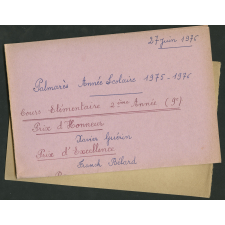 27 juin 1975
Palmarès Année Scolaire 1975-1975
Cours Elémentaire 2ème Année (P)
Prix d'Honneur
Xavier Guérin
Prix d'Excellence
Franck Bélard